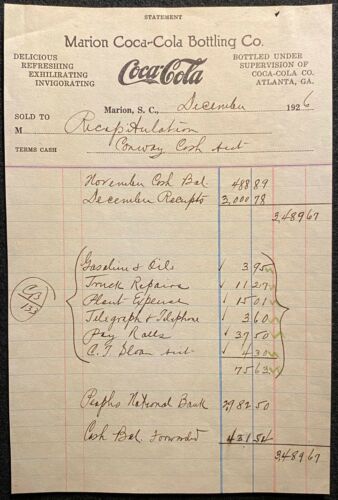 STATEMENT
Marion Coca-Cola Bottling Co.
DELICIOUS
REFRESHING
EXHILIRATING
INVIGORATING
Coca-Cola
BOTTLED UNDER
SUPERVISION OF
COCA-COLA CO.
ATLANTA, GA.
Marion, S. C., December 1926
SOLD TO
M Recapitulation
TERMS CASH Conway Cash Act
November Cash Bal. 488 89
December Receipts 3,000 78
3,489 67
Gasoline & Oils ✓ 3 95
Truck Repairs ✓ 11 27
Plant Expense ✓ 15 01
Telegraph & Telephone ✓ 3 60
Pay Rolls ✓ 37 50
C. T. Sloan Act. ✓ 4 30
75 63
Peoples National Bank 2982 50
Cash Bal. Forwarded 431 54
3,489 67